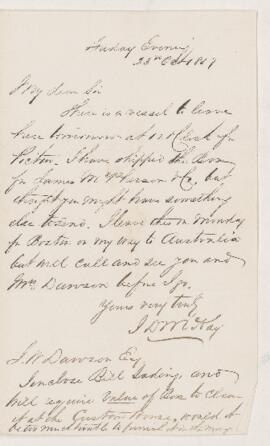 Friday Evening
23rd Oct 1857
My dear Sir
There is a vessel to leave
here tomorrow at 12 OClock for
Pictou. I have shipped the Box
for James McPherson & Co. but
thought you might have something
else to send. I leave this on Monday
for Boston on my way to Australia
but will call and see you and
Mrs. Dawson before I go.
Yours very truly
J D McKay
J. W. Dawson Esq
Inclose Bill Lading, and
will require value of Box to clear
it at the Custom House, would it
be too much trouble to furnish it in the morng